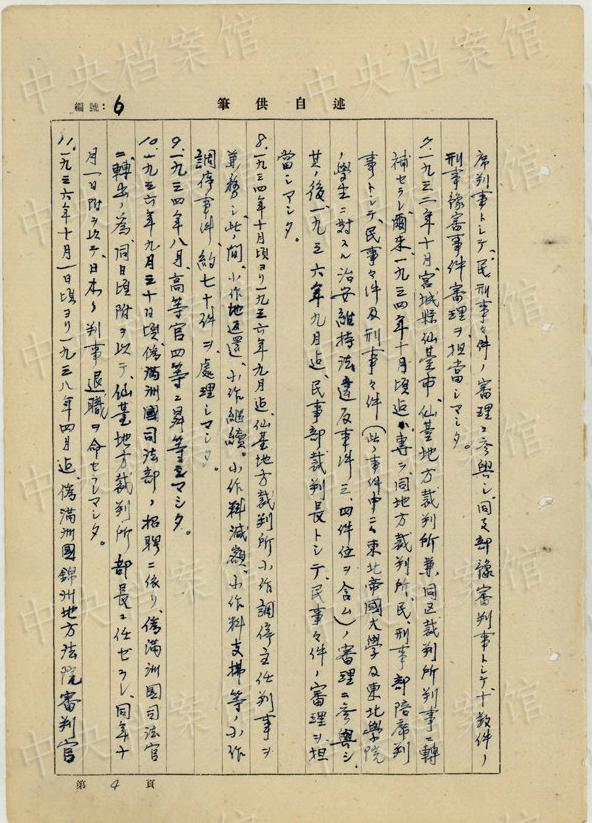 編號：6
述自供筆
席判事トシテ、民刑事々件ノ審理ニ參與シ、同支部豫審判事トシテ十數件ノ
刑事豫審事件審理ヲ担當シマシタ。
7.一九三二年十月、宮城縣仙臺市、仙臺地方裁判所兼、同区裁判所判事ニ轉
補セラレ爾来、一九三四年十月頃迠、專ラ同地方裁判所、民、刑事部陪席判
事トシテ、民事々件及刑事々件（此ノ事件中ニハ東北帝國大學及東北學院
ノ學生ニ対スル治安維持法違反事件三、四件位ヲ含ム）ノ審理ニ參與シ、
其ノ後一九三六年九月迠、民事部裁判長トシテ、民事々件ノ審理ヲ担
當シマシタ。
8.一九三四年十月頃ヨリ一九三六年九月迠、仙臺地方裁判所小作調停主任判事ヲ
兼務シ、此ノ間、小作地返還、小作継續、小作料減額、小作料支拂等ノ小作
調停事件、約七十件ヲ處理シマシタ。
9.一九三四年八月、高等官四等ニ昇等シマシタ。
10.一九三六年九月三十日頃、偽満洲國司法部ノ招聘ニ依リ、偽満洲國司法官
ニ轉出ノ為、同日頃附ヲ以テ、仙臺地方裁判所部長ニ任ゼラレ、同年十
月一日附ヲ以テ、日本ノ判事退職ヲ命セラレマシタ。
11.一九三六年十月一日頃ヨリ一九三八年四月迠、偽満洲國錦州地方法院審判官
第4頁
中央档案馆